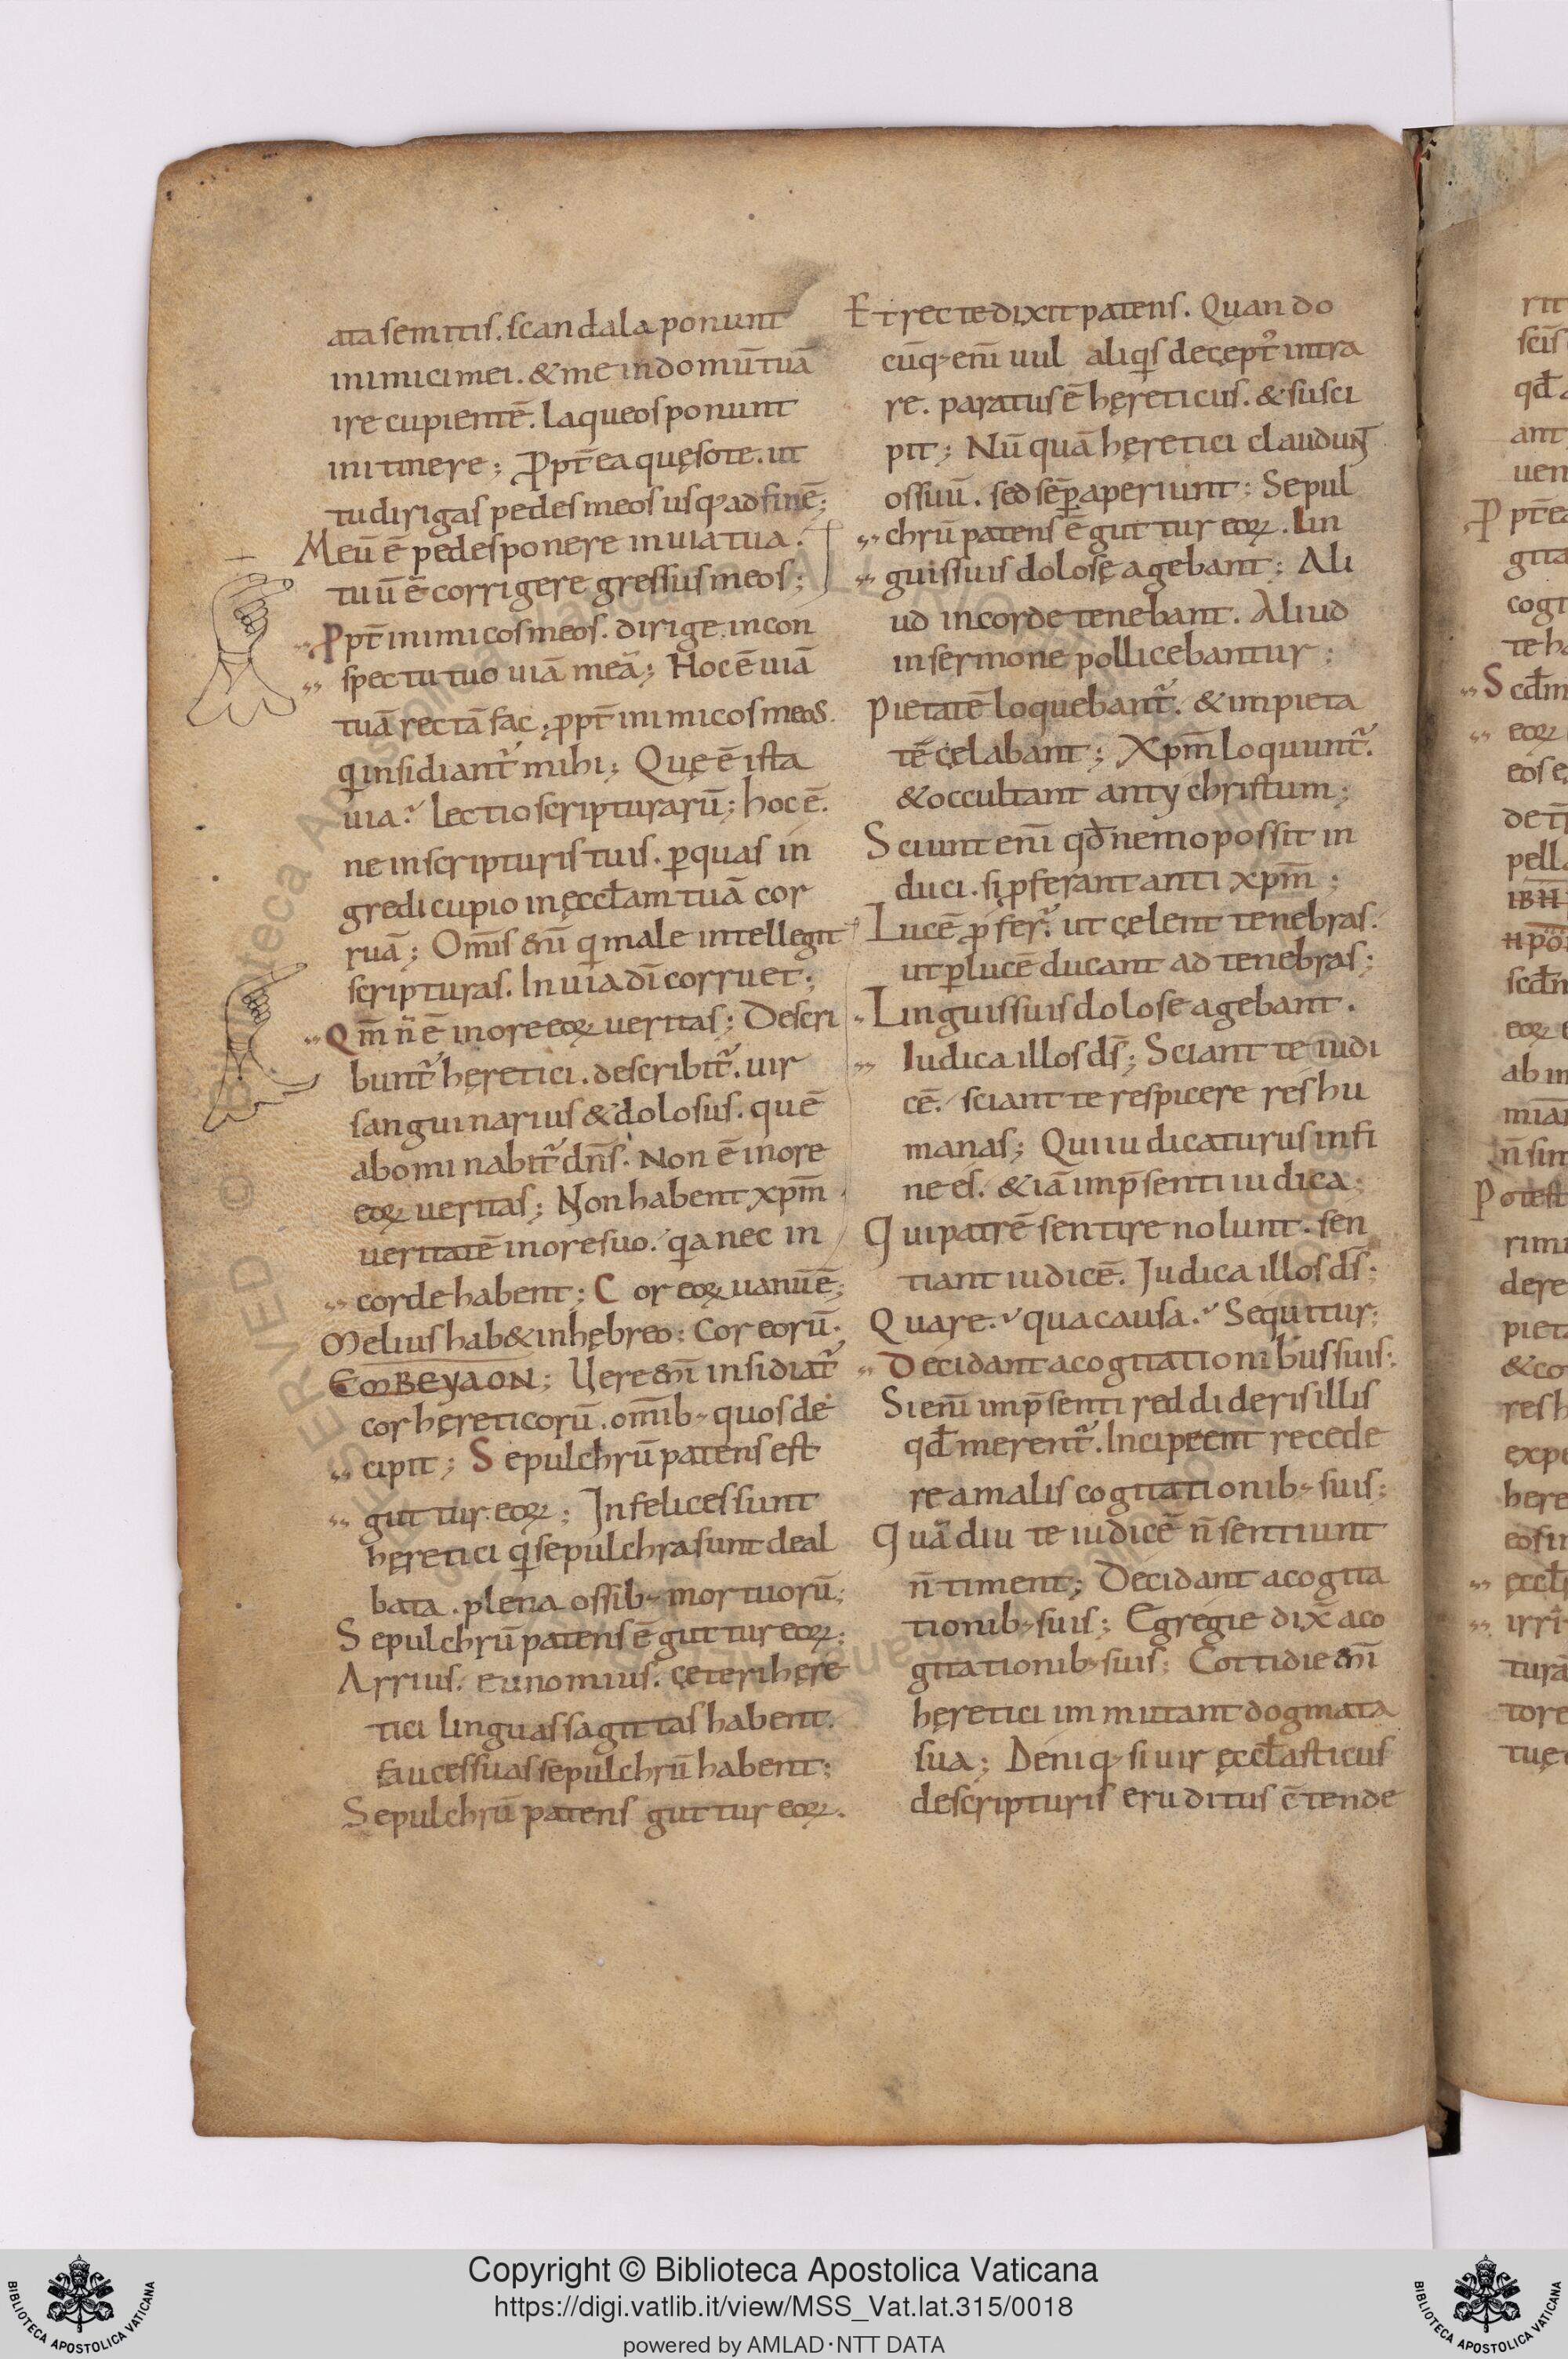 ata semitis. scandala ponunt
inimici mei. & me in domū tuā
ire cupientē. laqueos ponunt
in itinere; Ꝓpt̄ ea quęso te. ut
tu dirigas pedes meos usq; ad finē;
Meū ē pedes ponere in uia tua.
tuū ē corrigere gressus meos;
Ꝓpt̄ inimicos meos. dirige in con
spectu tuo uiā meā; Hoc ē uiā
tuā rectā fac. ꝓpt̄ inimicos meos
qi insidiant̃ mihi; Quę ē ista
uia? lectio scripturarū; hoc ē.
ne in scripturis tuis. ꝑ quas in
gredi cupio in ęccłam tuā cor
ruā; Om̄is eni̅ qi male intellegit
scripturas. In uia dī corruet;
Qm̄ n̄ ē in ore eoꝝ ueritas; Descri
bunt̃ hęretici. describit̃. uir
sanguinarius & dolosus. quē
abominabit̃ dn̄s. Non ē in ore
eoꝝ ueritas; Non habent xpm̄
ueritatē in ore suo. qia nec in
corde habent; Cor eoꝝ uanū ē;
Melius hab& in hębreo: Cor eorū.
ЄꙌBЄYAON; Uere eni̅ insidiat̃
cor hęreticorū. om̄ib; quos de
cipit; Sepulchrū patens est
guttur eoꝝ; Infelices sunt
hęretici qi sepulchra sunt deal
bata. plena ossib; mortuorū;
Sepulchrū patens ē guttur eoꝝ;
Arrius. eunomius. cęteri hęre
tici linguas sagittas habent.
fauces suas sepulchrū habent;
Sepulchrū patens guttur eoꝝ.
Et recte dixit patens. Quando
cūq; eni̅ uul aliqis decept᷒ intra
re. paratus ē hęreticus. & susci
pit; Nū quā hęretici claudunt
os suū. sed sēꝑ aperiunt; Sepul
chrū patens ē guttur eoꝝ. Lin
guis suis dolosę agebant; Ali
ud in corde tenebant. Aliud
in sermone pollicebantur;
Pietatē loquebant̃. & impieta
tē cęlabant; Xpm̄ loquunt̃.
& occultant anty christum;
Sciunt eni̅ qđ nemo possit in
duci. si p̄ferant anti xpm̄;
Lucē ꝓfer̃. ut cęlent tenebras.
ut ꝑ lucē ducant ad tenebras;
Linguis suis dolose agebant.
Iudica illos ds̄; Sciant te iudi
cē. sciant te respicere res hu
manas; Qui iudicaturus in fi
ne es. & iā in p̄senti iudica;
Qui patrē sentire nolunt. sen
tiant iudicē. Judica illos ds̄;
Quare? qua causa? Sequitur;
Decidant a cogitationibus suis;
Si eni̅ in p̄senti reddideris illis
qđ merent̃. Incipeent recede
re a malis cogitationib; suis;
Quā diu te iudicē n̄ sentiunt
n̄ timent; Decidant a cogita
tionib; suis; Egregie dix̄ a co
gitationib; suis; Cottidie eni̅
hęretici immutant dogmata
sua; Deniq; si uir ęccłasticus
de scripturis eruditus c̄tende
Copyright © Biblioteca Apostolica Vaticana
https://digi.vatlib.it/view/MSS_Vat.lat.315/0018
powered by AMLAD·NTT DATA
BIBLIOTECA APOSTOLICA VATICANA
BIBLIOTECA APOSTOLICA VATICANA